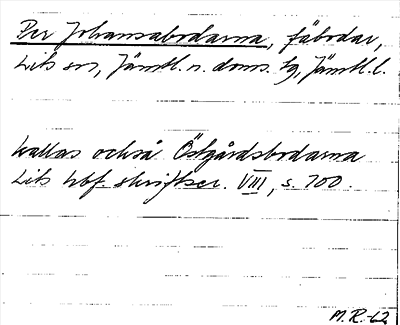 Per Johansabodarna, fäbodar,
Lits sn, Jämtl. n. doms. tg, Jämtl. l.
kallas också Östgårdsbodarna
Lits hbf. skrifter. VIII, s. 700.
M.R.-62